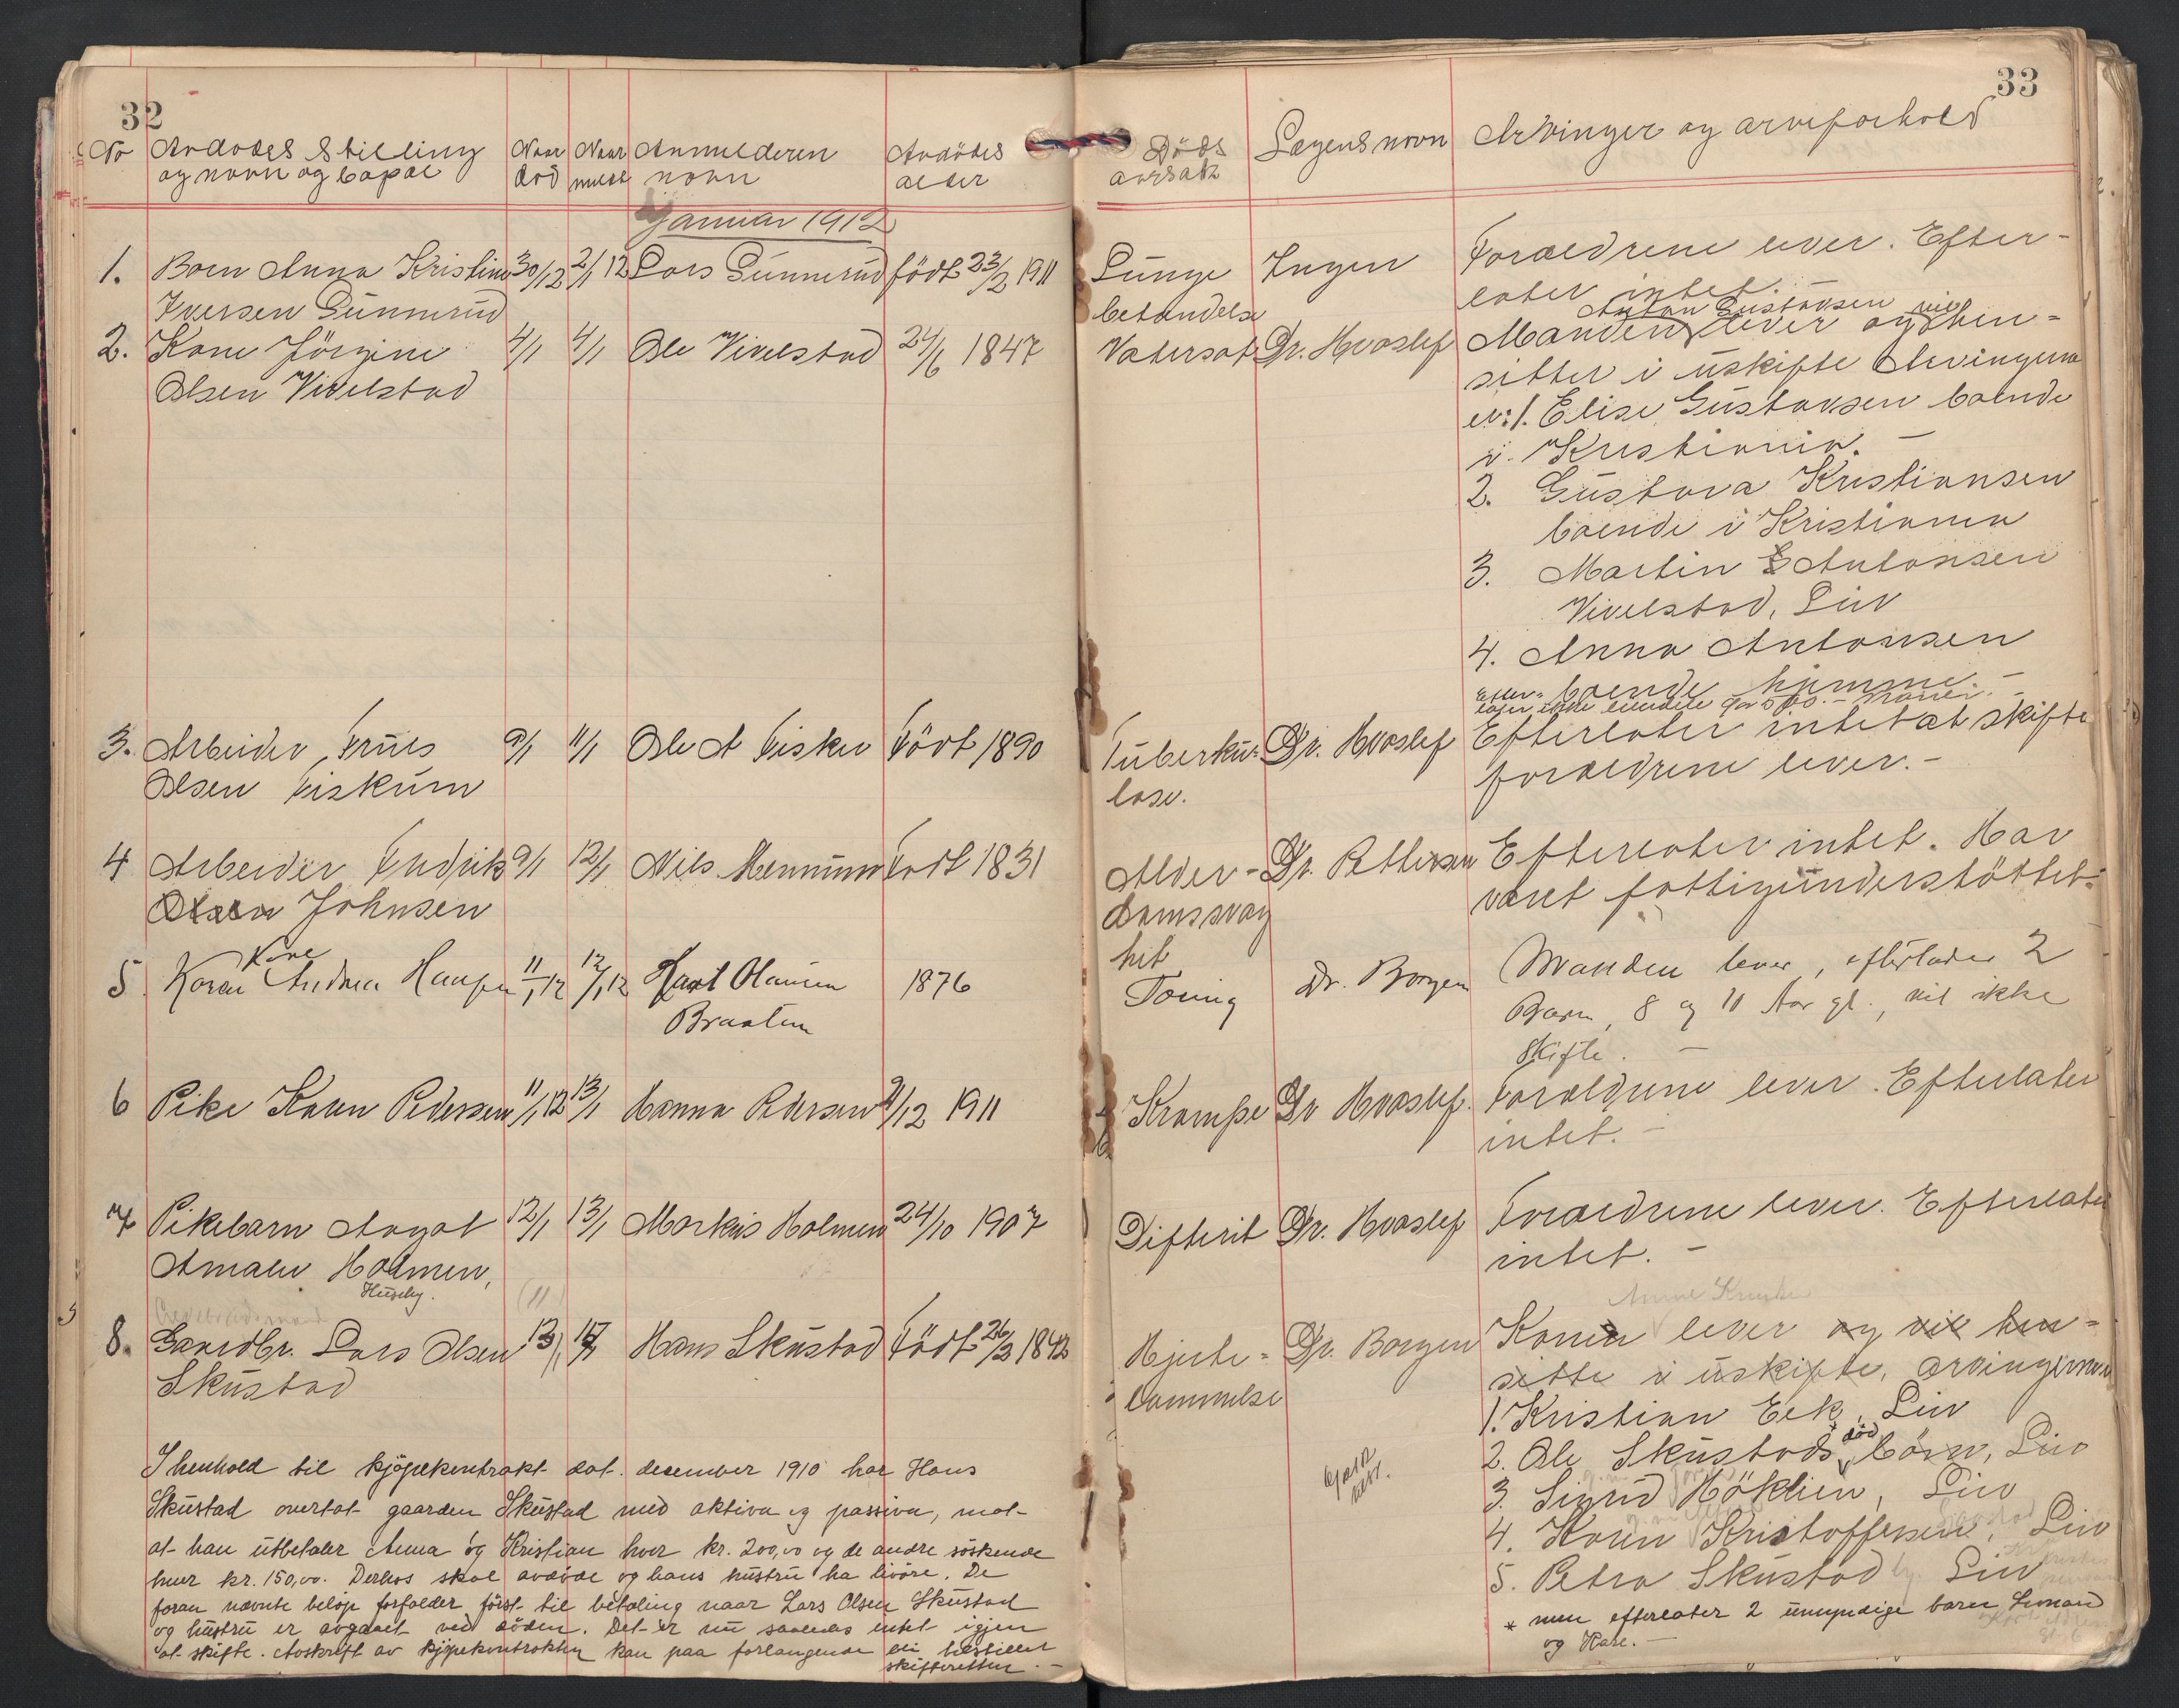 32
No Avdødes Stilling Naar Naar Anmelderen Avdödes
og navn og bopæl död meldt navn alder
Januar 1912
1. Barn Anna Kristine 30/12 2/1 12 Lars Gunnerud födt 23/2 1911
Iversen Gunnerud
2. Kone Jörgine 4/1 4/1 Ole Vivelstad 24/6 1847
Olsen Vivelstad
3. Arbeider, Truls 9/1 11/1 Ole A Fisker Födt 1890
Olsen Fiskum
4 Arbeider Fredrik 9/1 12/1 Nils Mennum Födt 1831
Olsen Johnsen
Kone
5 Karen Andrea Hansen 11/1 12 12/1 12 Karl Olausen 1876
Braaten
6 Pike Karen Pedersen 11/1 12 13/1 Hanna Pedersen 9/12 1911
7 Pikebarn Aagot 12/1 13/1 Markus Holmen 24/10 1907
Amalie Holmen,
Huseby.
(11)
8. Gaardbr. Lars Olsen 13/1 17/1 Hans Skustad Födt 26/3 1842
Skustad
I henhold til kjöpekontrakt dat. december 1910 har Hans
Skustad overtat gaarden Skustad med aktiva og passiva, mot
at han utbetaler Anna og Kristian hver kr. 200,00 og de andre söskende
hver kr. 150,00. Derhos skal avdöde og hans hustru ha livöre. De
foran nævnte belöp forfalder först til betaling naar Lars Olsen Skustad
og hustru er avgaaet ved döden. Det er nu saaledes intet igjen
at skifte. Avskrift av kjöpekontrakten kan paa forlangende bli tilstillet
skifteretten. –
33
Döds Lægens navn Arvinger og arveforhold
aarsak
Lunge Ingen Forældrene lever. Efter-
betændelse later intet.
Anton Gustavsen vil
Vatersot Dr. Hvoslef Manden lever og hen-
sitter i uskifte Arvingerne
er: 1. Elise Gustavsen boende
i Kristiania. –
2. Gustava Kristiansen
boende i Kristiania
3. Martin Antonsen
Vivelstad, Liv
4. Anna Antonsen
boende hjemme. –
Tuberku- Dr. Hvoslef Efterlater intet at skifte
lose. forældrene lever. –
Alder- Dr. Pettersen Efterlater intet. Har
domssvag været fattigunderstöttet.
het
Tæring Dr. Borgen Manden lever, efterlader 2
Barn, 8 og 10 Aar gl., vil ikke
skifte. –
Krampe Dr Hvoslef. Forældrene lever. Efterlater
intet. –
Difterit Dr. Hvoslef Forældrene lever. Efterlater
intet. –
Hjerte- Dr. Borgen Konen lever og vil hen-
lammelse sitte i uskifte, arvingerne
1. Kristian Eek, Liv
död
2. Ole Skustads börn, Liv
3. Sigrid Höklien, Liv
4. Karen Kristoffersen, Liv
5. Petra Skustad Liv
* men efterlater 2 umyndige barn Leonard
og Kare. –